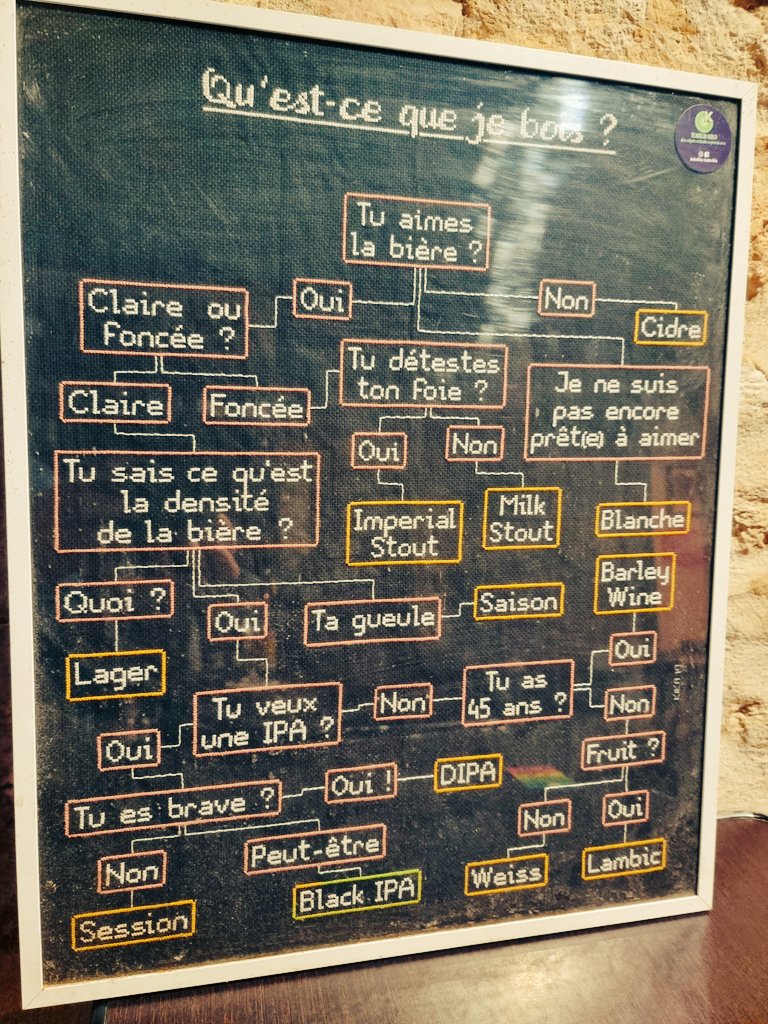 Qu'est-ce que je bois ?
Tu aimes
la bière ?
Oui
Non
Claire ou
foncée ?
Cidre
Tu détestes
ton foie ?
Je ne suis
pas encore
prêt(e) à aimer
Claire
Foncée
Oui
Non
Tu sais ce qu'est
la densité
de la bière ?
Imperial
Stout
Milk
Stout
Blanche
Barley
Wine
Quoi ?
Oui
Ta gueule
Saison
Oui
Lager
Tu veux
une IPA ?
Non
Tu as
45 ans ?
Non
Oui
Fruit ?
Tu es brave ?
Oui !
DIPA
Non
Oui
Non
Peut-être
Weiss
Lambic
Session
Black IPA